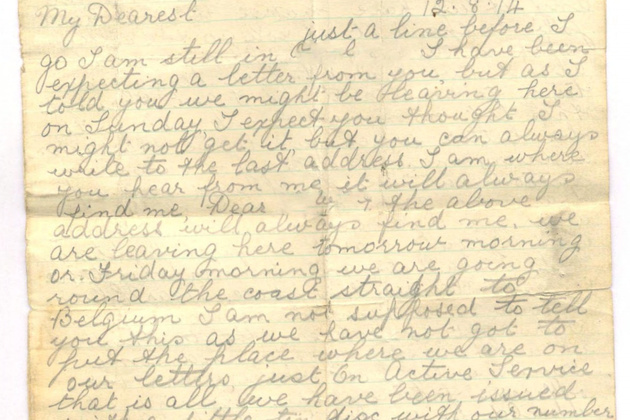 12.8.14
My Dearest
just a line before I
go I am still in I have been
expecting a letter from you, but as I
told you we might be leaving here
on Sunday, I expect you thought I
might not get it, but you can always
write to the last address I am where
you hear from me, it will always
find me, Dear the above
address will always find me, we
are leaving here tomorrow morning
or Friday morning we are going
round the coast straight to
Belgium I am not supposed to tell
you this as we have not got to
put the place where we are on
our letters, just On Active Service
that is all we have been issued
little disc with our number